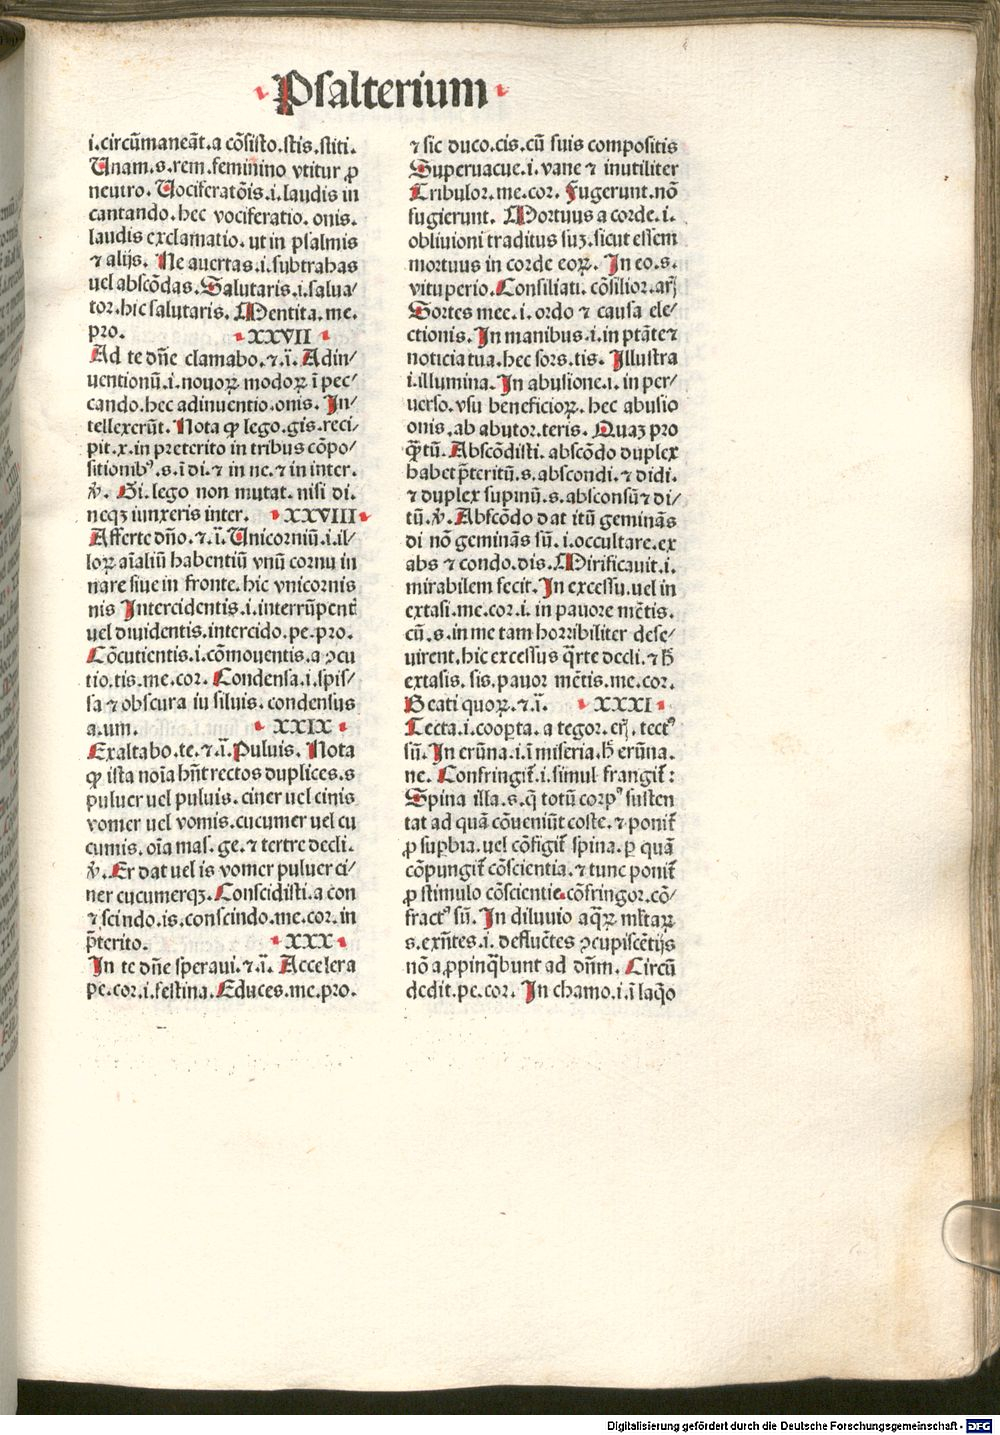 Psalterium
i.circūmaneāt.a cōsisto.stis.stiti.
Unam.s.rem.feminino vtitur ꝓ
neutro. Uociferatōis.i.laudis in
cantando.hec vociferatio.onis.
laudis exclamatio.ut in psalmis
⁊ alijs. Ne auertas.i.subtrahas
uel abscōdas.Salutaris.i.salua/
tor.hic salutaris. Mentita.me.
pro. XXVII
Ad te dn̄e clamabo.⁊.ī. Adin/
uentionū.i.nouoꝝ modoꝝ ī pec/
cando.hec adinuentio.onis. In/
tellexerūt. Nota ꝙ lego.gis.reci/
pit.x.in preterito in tribus cōpo/
sitionibꝰ.s.ī di.⁊ in ne.⁊ in inter.
v̊. Xi.lego non mutat.nisi di.
neqꝫ iunxeris inter. XXVIII
Afferte dn̄o.⁊.ī.Unicorniū.i.il/
loꝝ aīaliū habentiū vnū cornu in
nare siue in fronte.hic vnicornis
nis Intercidentis.i.interrūpentī
uel diuidentis.intercido.pe.pro.
Cōcutientis.i.cōmouentis.a ꝯcu
tio.tis.me.cor. Condensa.i.spis/
sa ⁊ obscura iu siluis.condensus
a.um. XXIX
Exaltabo.te.⁊.ī.Puluis. Nota
ꝙ ista noīa hn̄t rectos duplices.s
puluer uel puluis.ciner uel cinis
vomer uel vomis.cucumer uel cu
cumis.oīa mas.ge.⁊ tertre decli.
v̊. Er dat uel is vomer puluer ci/
ner cucumerqꝫ.Conscidisti.a con
⁊ scindo.is.conscindo.me.cor.in
p̄terito. XXX
In te dn̄e speraui.⁊.ī. Accelera
pe.cor.i.festina.Educes.me.pro.
⁊ sic duco.cis.cū suis compositis
Superuacue.i.vane ⁊ inutiliter
Tribulor.me.cor. Fugerunt.nō
fugierunt. Mortuus a corde.i.
obliuioni traditus suꝫ.sicut essem
mortuus in corde eoꝝ. In eo.s.
vituperio.Consiliati.cōsilior.arꝭ
Sortes mee.i.ordo ⁊ causa ele/
ctionis.In manibus.i.in ptāte ⁊
noticia tua.hec sors.tis. Illustra
i.illumina.In abusione.i.in per/
uerso.vsu beneficioꝝ.hec abusio
onis.ab abutor.teris. Quaꝫ pro
q̄tū.Abscōdisti.abscōdo duplex
habet p̄teritū.s.abscondi.⁊ didi.
⁊ duplex supinū.s.absconsū ⁊ di/
tū.v̊.Abscōdo dat itū geminās
di nō geminās sū.i.occultare.ex
abs ⁊ condo.dis.Mirificauit.i.
mirabilem fecit.In excessu.uel in
extasi.me.cor.i.in pauore mētis.
cū.s.in me tam horribiliter dese/
uirent.hic excessus q̄rte decli.⁊ h̄
extasis.sis.pauor mētis.me.cor.
Beati quoꝝ.⁊.ī. XXXI
Tecta.i.coopta.a tegor.erꝭ.tectꝰ
sū.In erūna.i.ī miseria.h̄ erūna.
ne. Confringit̄.i.simul frangit̄:
Spina illa.s.q̄ totū corpꝰ susten
tat ad quā cōueniūt coste.⁊ ponit̄
ꝓ supbia.uel cōfigit̄ spina.ꝑ quā
cōpungit̄ cōscientia.⁊ tunc ponit̄
ꝓ stimulo cōscientie.cōfringor.cō/
fractꝰ sū. In diluuio aq̄ꝝ mltaꝝ
s.exn̄tes.i.defluētes ꝯcupiscētijs
nō a ꝓpinq̄bunt ad dn̄m. Circū
dedit.pe.cor. In chamo.i.ī laq̄o
Digitalisierung gefördert durch die Deutsche Forschungsgemeinschaft - DFG